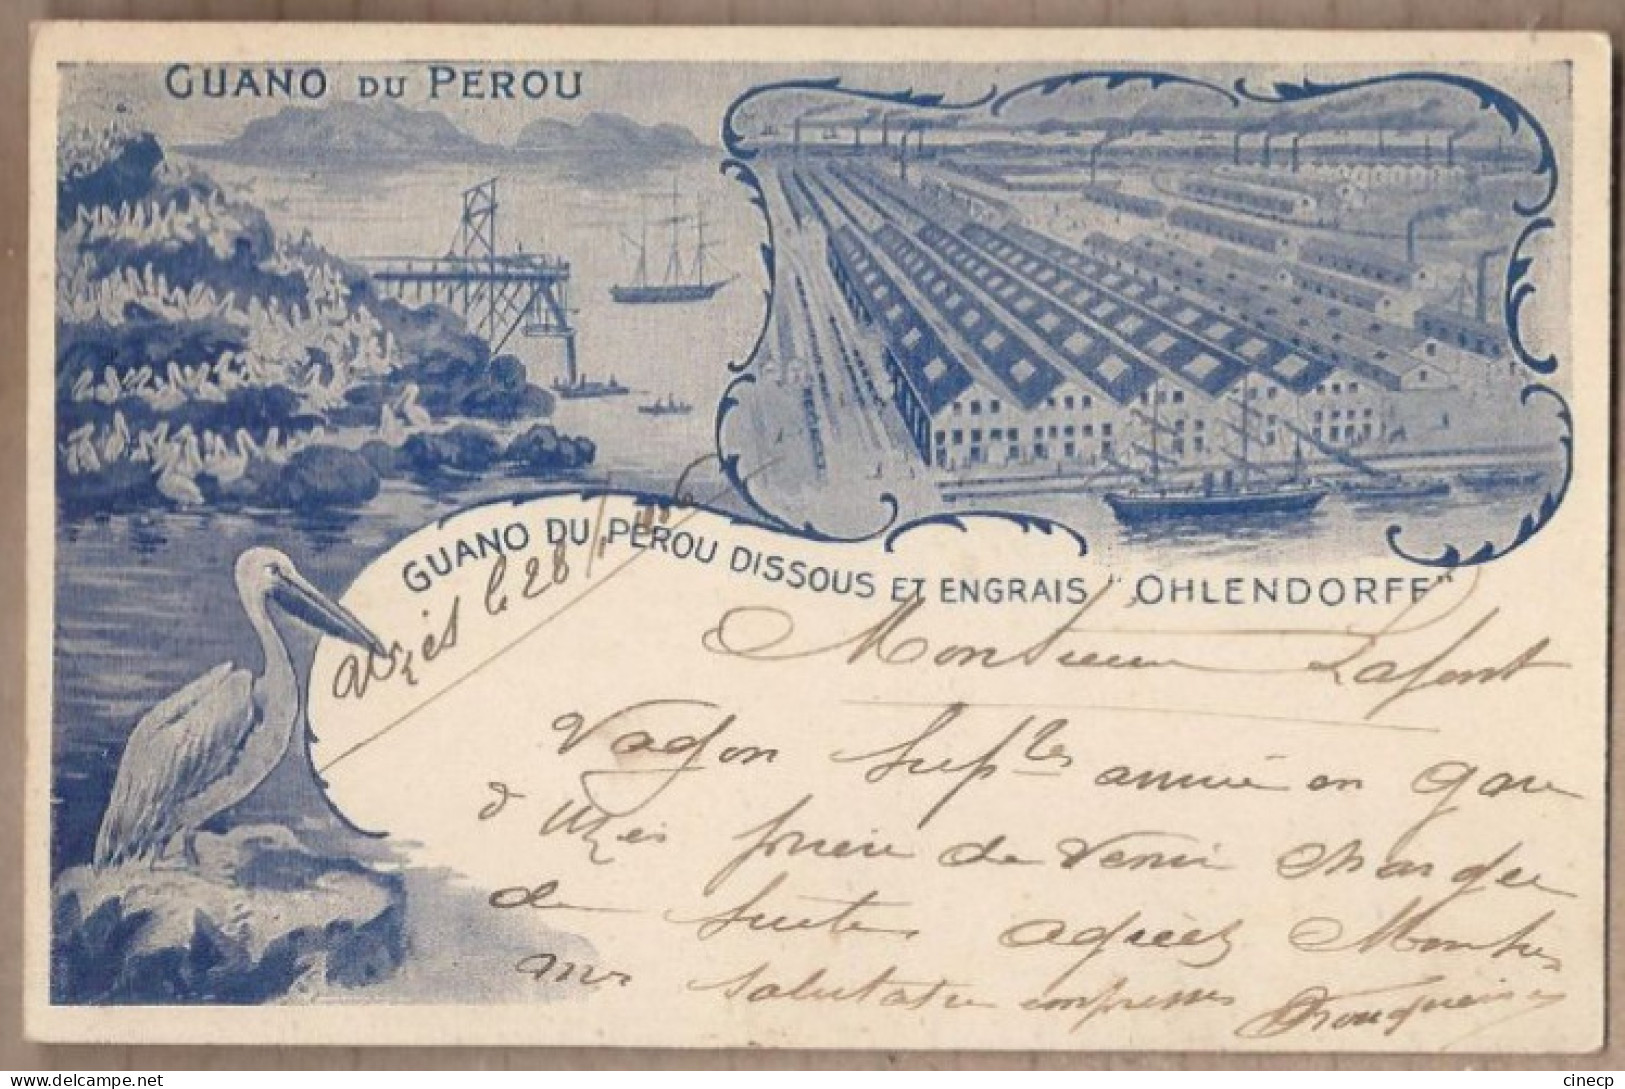 GUANO DU PEROU
GUANO DU PEROU DISSOUS ET ENGRAIS "OHLENDORFF"
uzès le 28/1 1906
Monsieur Lafont
Vagon Suples année en gare
d'Uzès prière de venir charger
de suite agréez Monsieur
mes salutation empressees
cinecp